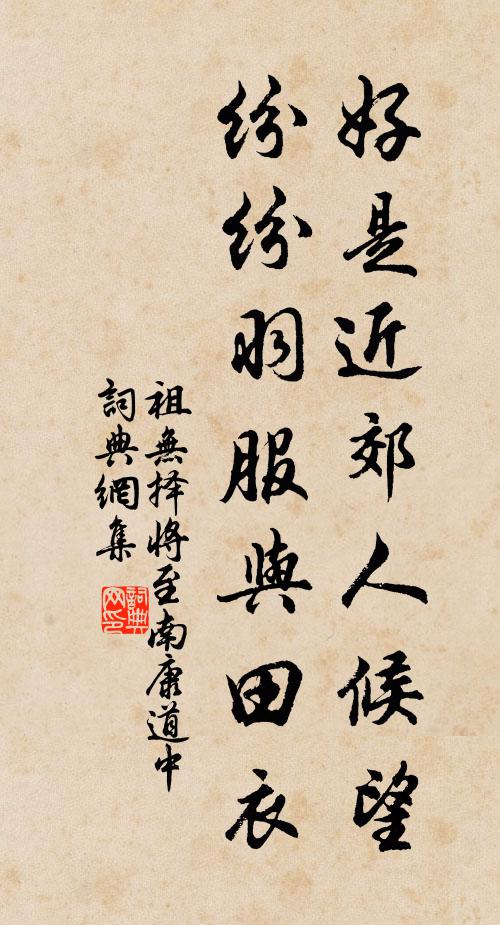 好是近郊人候望
紛紛羽服與田衣
祖無择將至南康道中
詞典網集
詞典
网印